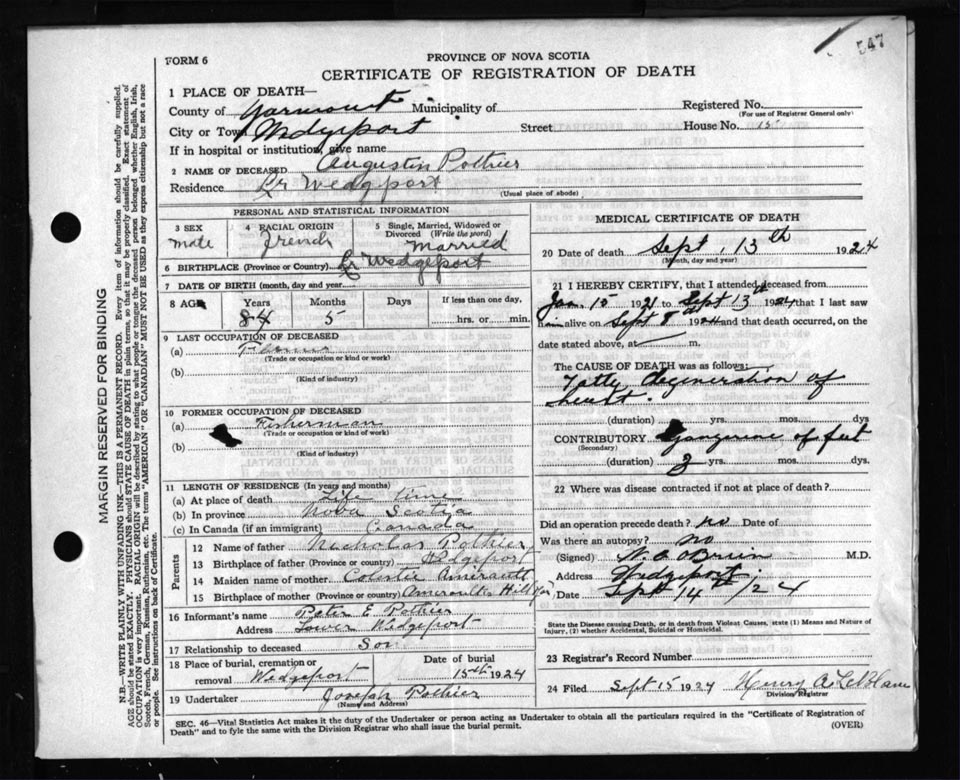 547
FORM 6
PROVINCE OF NOVA SCOTIA
CERTIFICATE OF REGISTRATION OF DEATH
1 PLACE OF DEATH—
County of Yarmouth Municipality of Registered No.
(For use of Registrar General only)
City or Town Wedgeport Street House No. 15
If in hospital or institution, give name
2 NAME OF DECEASED Augustin Pothier
Residence Lr Wedgeport
(Usual place of abode)
PERSONAL AND STATISTICAL INFORMATION
3 SEX 4 RACIAL ORIGIN 5 Single, Married, Widowed or
Divorced (Write the word)
male French married
6 BIRTHPLACE (Province or Country) Lr Wedgeport
7 DATE OF BIRTH (month, day and year)
8 AGE Years Months Days If less than one day,
84 5 hrs. or min.
9 LAST OCCUPATION OF DECEASED
(a) Farmer
(Trade or occupation or kind or work)
(b)
(Kind of industry)
10 FORMER OCCUPATION OF DECEASED
(a) Fisherman
(Trade or occupation or kind of work)
(b)
(Kind of industry)
11 LENGTH OF RESIDENCE (In years and months)
(a) At place of death Life time
(b) In province Nova Scotia
(c) In Canada (if an immigrant) Canada
Parents
12 Name of father Nicholas Pothier
13 Birthplace of father (Province or country) Wedgeport
14 Maiden name of mother Amirault
15 Birthplace of mother (Province or country) Amiraults Hill Yar
16 Informant's name Peter E Pothier
Address Lower Wedgeport
17 Relationship to deceased Son
18 Place of burial, cremation or Date of burial
removal Wedgeport 15th 1924
19 Undertaker Joseph Pothier
(Name and Address)
MEDICAL CERTIFICATE OF DEATH
20 Date of death Sept 13th 1924
(Month, day and year)
21 I HEREBY CERTIFY, that I attended deceased from
Jan 15 1921 to Sept 13th 1924 that I last saw
him alive on Sept 8th 1924 and that death occurred, on the
date stated above, at m.
The CAUSE OF DEATH was as follows:
Fatty degeneration of
heart.
(duration) yrs. mos. dys
CONTRIBUTORY Gangrene of feet
(Secondary)
(duration) 3 yrs. mos. dys.
22 Where was disease contracted if not at place of death?
Did an operation precede death? no Date of
Was there an autopsy? no
(Signed) N. A O'Brien M.D.
Address Wedgeport
Date Sept 14th/24
State the Disease causing Death, or in death from Violent Causes, state (1) Means and Nature of
Injury, (2) whether Accidental, Suicidal or Homicidal.
23 Registrar's Record Number
24 Filed Sept 15 1924 Henry A LeBlanc
Division Registrar
SEC. 46—Vital Statistics Act makes it the duty of the Undertaker or person acting as Undertaker to obtain all the particulars required in the "Certificate of Registration of
Death" and to fyle the same with the Division Registrar who shall issue the burial permit.
(OVER)
MARGIN RESERVED FOR BINDING
N.B.—WRITE PLAINLY WITH UNFADING INK—THIS IS A PERMANENT RECORD. Every item of information should be carefully supplied.
AGE should be stated EXACTLY. PHYSICIANS should STATE CAUSE OF DEATH in plain terms, so that it may be properly classified. Exact statement of
OCCUPATION is very important. RACIAL ORIGIN will be described by stating to what people or tongue the deceased person belonged whether English, Irish,
Scotch, French, German, Russian, Ruthenian, etc. The terms "AMERICAN" OR "CANADIAN" MUST NOT BE USED as they express citizenship but not a race
or people. See instructions on back of Certificate.